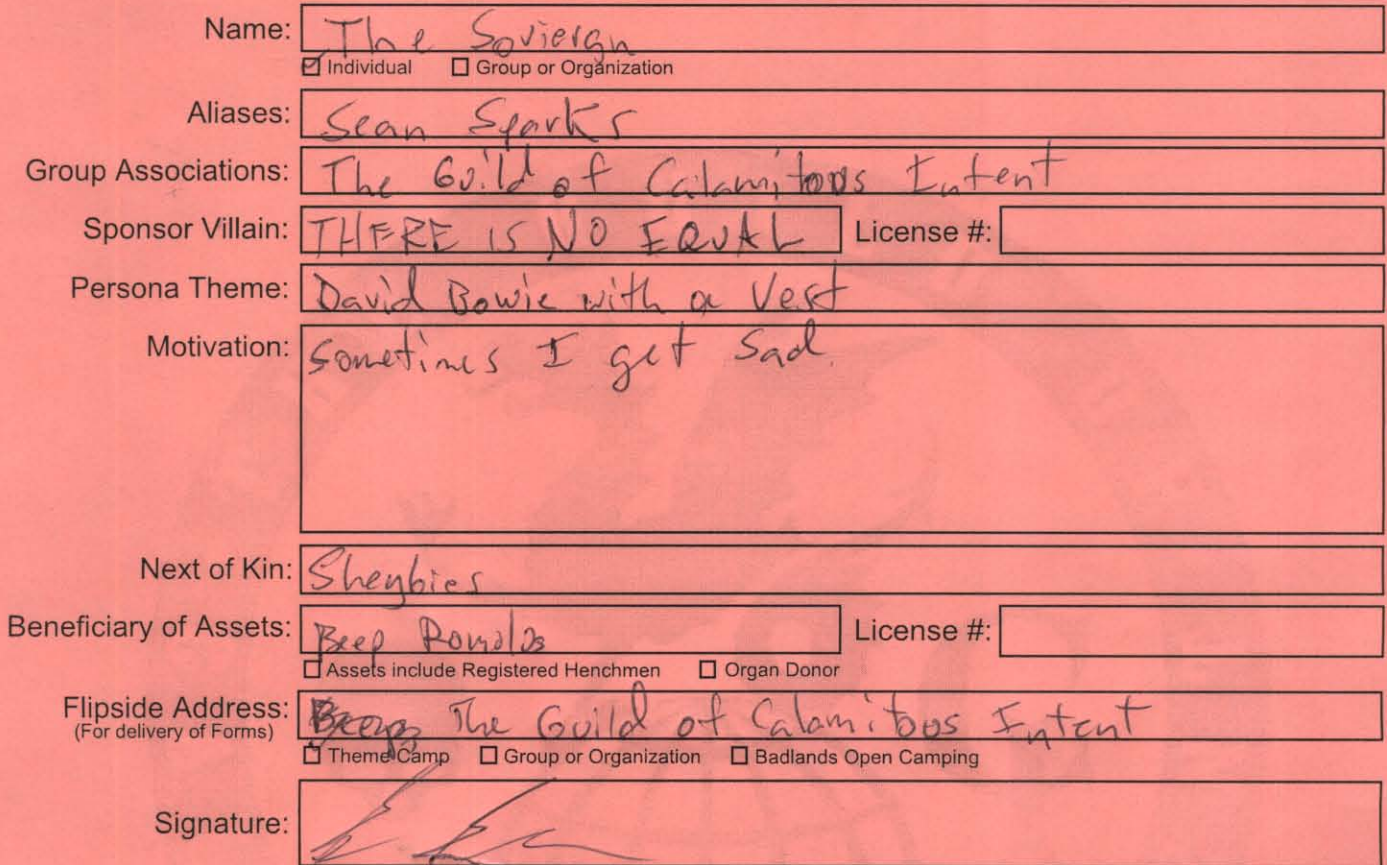 Name: The Soviergn
☑ Individual ☐ Group or Organization
Aliases: Sean Sparks
Group Associations: The Guild of Calamitous Intent
Sponsor Villain: THERE IS NO EQUAL License #:
Persona Theme: David Bowie with a Vest
Motivation: Sometimes I get Sad.
Next of Kin:
Beneficiary of Assets: Beep License #:
☐ Assets include Registered Henchmen ☐ Organ Donor
Flipside Address: The Guild of Calamitous Intent
(For delivery of Forms)
☐ Theme Camp ☐ Group or Organization ☐ Badlands Open Camping
Signature: